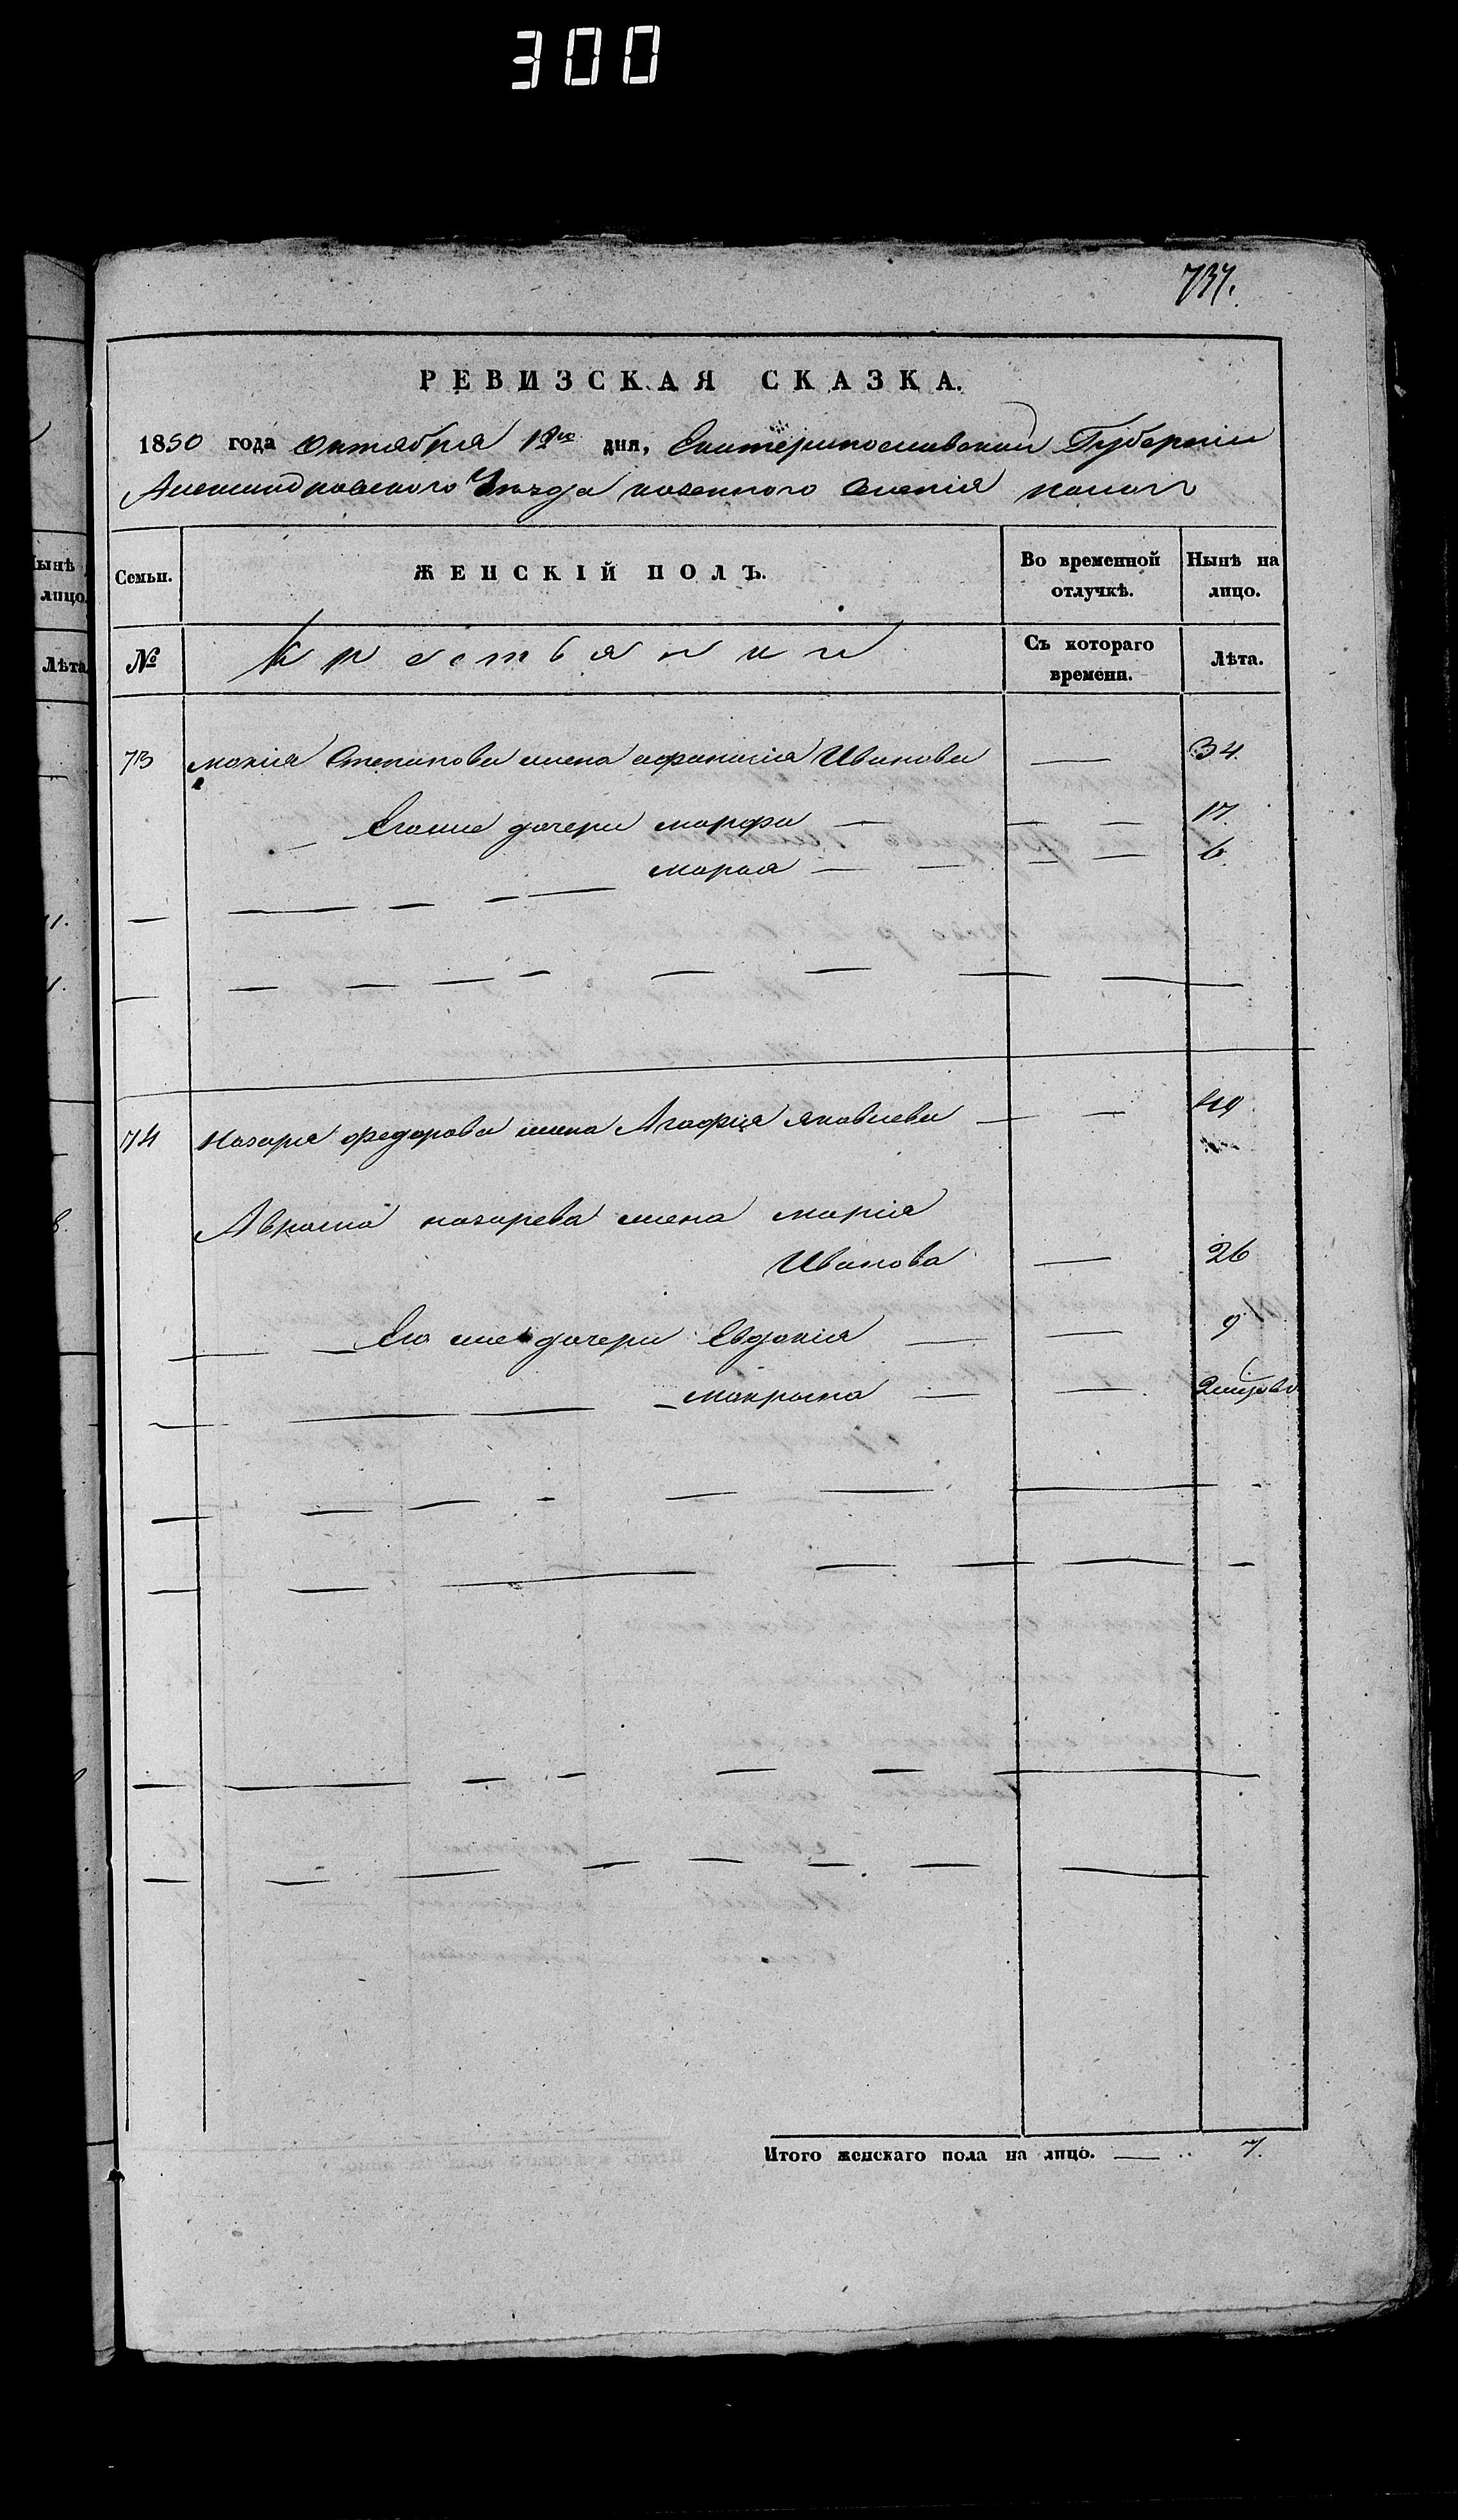 300
737.
РЕВИЗСКАЯ СКАЗКА.
1850 года Октября 12го дня, Екатеринославской Губернии
Александровского Уезда казенного селения
Нынѣ
лицо.
Лѣта
Семьи. ЖЕНСКІЙ ПОЛЪ. Во временной отлучкѣ. Нынѣ на лицо.
№ Крестьянии Съ котораго времени. Лѣта.
73 мокія Степанова жена афанасія Иванова — 34.
Егоже дочери марфа — — — 17.
мараа — — — — 6
74 Назара федорова жена Агафия яковлева — — 49
Аврама назарева жена марія
Иванова — 26
Его же дочери Евдокія — — 9
макрына — —
Итого женскаго пола на лицо. — 7.